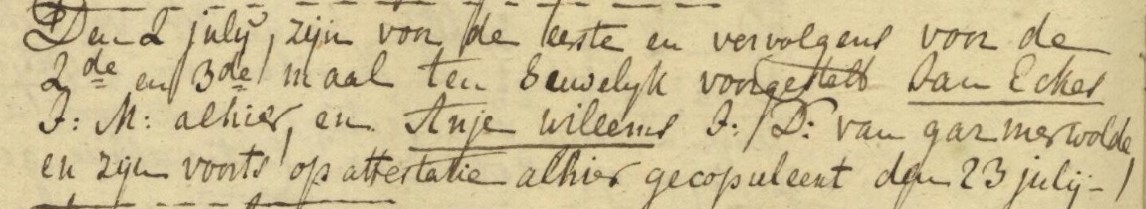 Den 2 july, zijn voor de eerste en vervolgens voor de
2de en 3de maal ten huwelyk voorgestelt Jan Eckes
J: M: alhier, en Anje willems J: D: van garmerwolde
en zijn voorts op attestatie alhier gecopuleert den 23 julij -